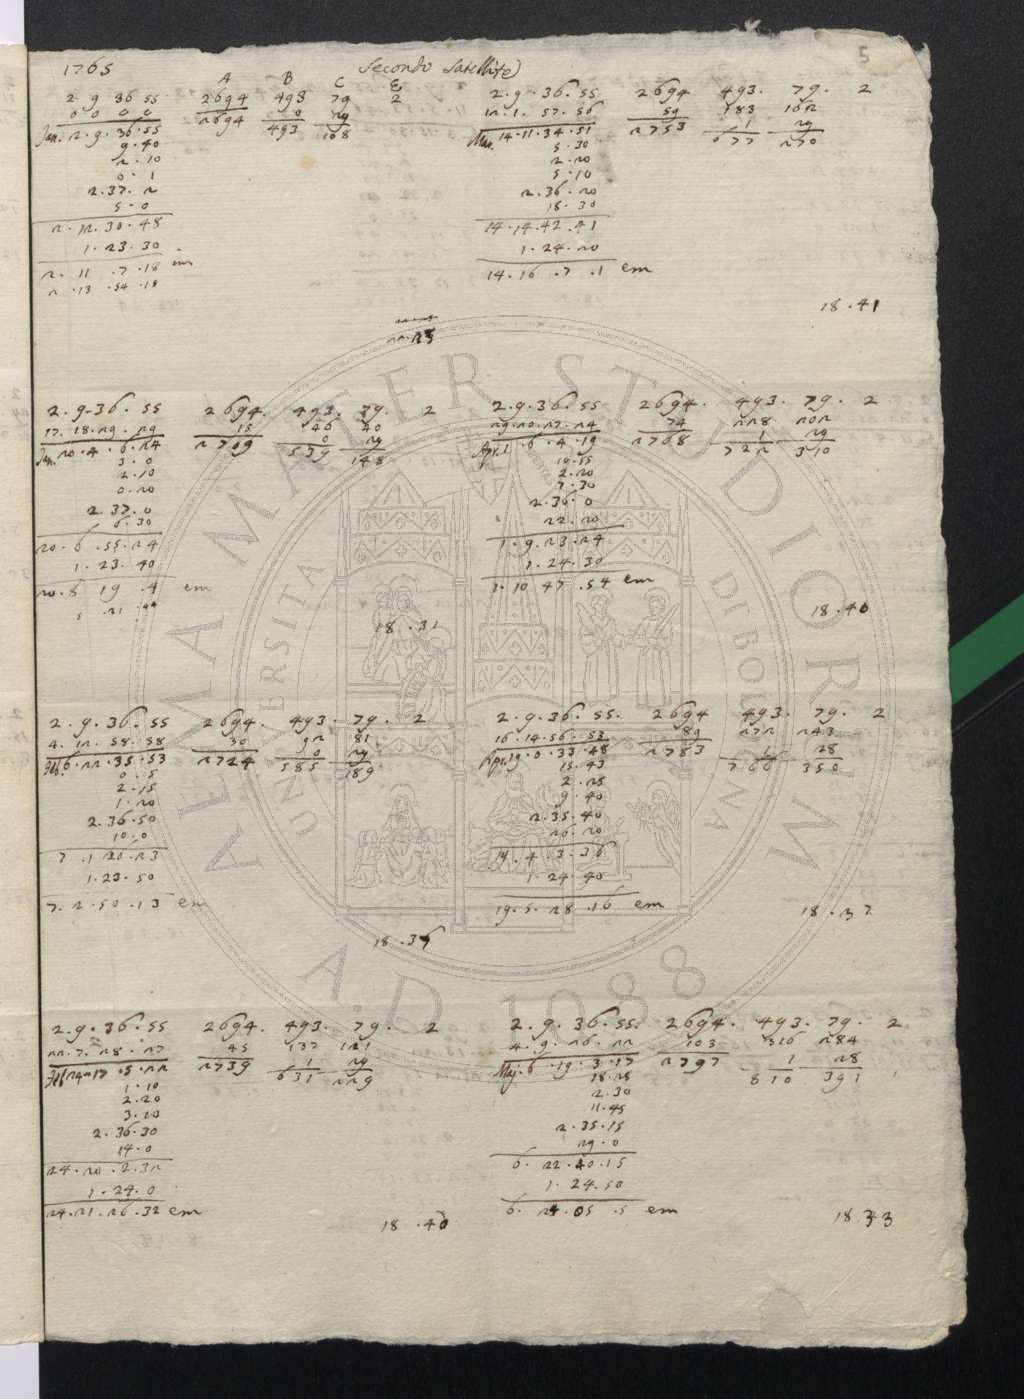 5
1765 Secondo Satellite
A B C E
2. 9 36 55 2694 493 79 2
0 0 0 0 0 29
Jan. 2. 9. 36. 55 2694 493 108
9. 40
2. 10
0. 1
2. 37. 2
5. 0
2. 12. 30. 48
1. 23. 30
2. 11 . 7. 18 em
2. 13 . 54 . 18
2. 9. 36. 55 2694 493. 79. 2
12. 1. 57. 56 59 183 162
1 29
Mar. 14. 11. 34. 51 2753 677 270
5. 30
2. 20
5. 10
2. 36. 20
18. 30
14. 14. 42. 41
1. 24. 20
14. 16 . 7 . 1 em
18. 41
2. 9. 36. 55 2694. 493. 79. 2
17. 18. 29. 29 15 46 40
0 29
Jan. 20. 4. 6. 24 2709 539 148
3. 0
2. 10
0. 20
2. 37. 0
6. 30
20. 6 . 55. 24
1. 23. 40
20. 8 19 . 4 em
18. 31
2. 9. 36. 55 2694. 493. 79. 2
29. 20. 27. 24 74 228 202
1 29
Apr. 1 6. 4. 19 2768 722 310
10. 55
2. 20
7. 30
2. 36. 0
22. 20
1. 9. 23. 24
1. 24. 30
1. 10 47 . 54 em
18. 40
2. 9. 36. 55 2694. 493. 79. 2
4. 12. 58. 58 30 92 81
0 29
Feb. 6. 22. 35. 53 2724 585 189
0. 5
2. 15
1. 20
2. 36. 50
10. 0
7 . 1 26. 23
1. 23. 50
7. 2. 50 . 13 em
18. 36
2. 9. 36. 55. 2694 493. 79. 2
16. 14. 56. 53 89 272 243
1 28
Apr. 19. 0. 33. 48 2783 766 350
15. 43
2. 25
9. 40
2. 35. 40
20. 20
19. 4. 3. 36
1. 24. 40
19. 5. 28 . 16 em
18. 37
2. 9. 36. 55 2694. 493. 79. 2
22. 7. 28. 27 45 137 121
1 29
Feb. 24. 17. 5. 22 2739 631 229
1. 10
2. 20
3. 10
2. 36. 30
14. 0
24. 20. 2. 32
1. 24. 0
24. 21. 26. 32 em
18. 40
2. 9. 36. 55. 2694. 493. 79. 2
4. 9. 26. 22 103 316 284
1 28
Maj. 6. 19. 3. 17 2797 810 391
18. 28
2. 30
11. 45
2. 35. 15
29. 0
6. 22. 40. 15
1. 24. 50
6. 24. 05 . 5 em
18. 33
ALMA MATER STUDIORUM
UNIVERSITA DI BOLOGNA
A.D. 1088